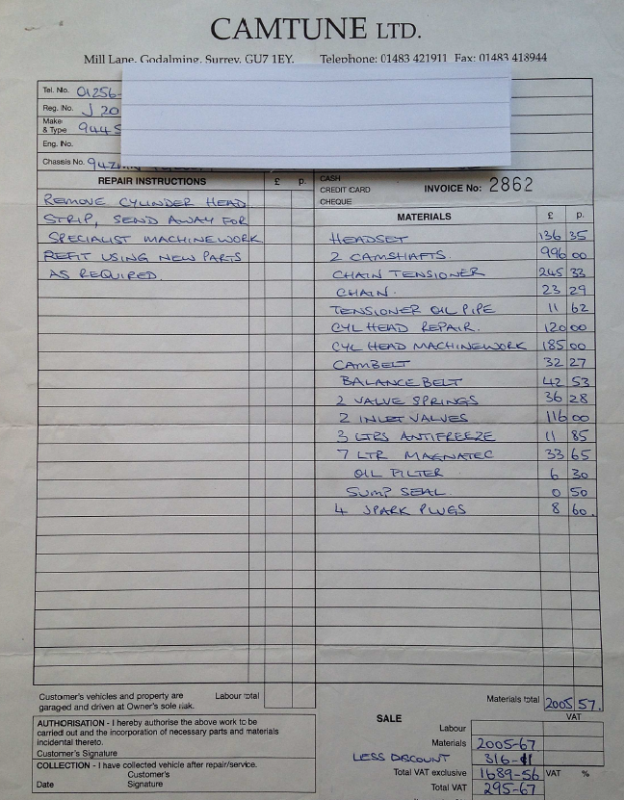 CAMTUNE LTD.
Mill Lane, Godalming, Surrey, GU7 1EY. Telephone: 01483 421911 Fax: 01483 418944
Tel. No. 01256-
Reg. No. J 20
Make & Type 944 S
Eng. No.
Chassis No.
REPAIR INSTRUCTIONS £ p.
CASH
CREDIT CARD
CHEQUE
INVOICE No: 2862
REMOVE CYLINDER HEAD
STRIP, SEND AWAY FOR
SPECIALIST MACHINEWORK
REFIT USING NEW PARTS
AS REQUIRED.
MATERIALS £ p.
HEADSET 136 35
2 CAMSHAFTS. 996 00
CHAIN TENSIONER 245 33
CHAIN. 23 29
TENSIONER OIL PIPE 11 62
CYL HEAD REPAIR. 120 00
CYL HEAD MACHINEWORK 185 00
CAMBELT 32 27
BALANCE BELT 42 53
2 VALVE SPRINGS 36 28
2 INLET VALVES 116 00
3 LTRS ANTIFREEZE 11 85
7 LTR MAGNATEC 33 65
OIL FILTER 6 30
SUMP SEAL 0 50
4 SPARK PLUGS 8 60.
Customer's vehicles and property are
garaged and driven at Owner's sole risk.
Labour total
Materials total 2005 57.
AUTHORISATION - I hereby authorise the above work to be
carried out and the incorporation of necessary parts and materials
incidental thereto.
Customer's Signature
COLLECTION - I have collected vehicle after repair/service.
Customer's
Date Signature
SALE VAT
Labour
Materials 2005-67
LESS DISCOUNT 316-11
Total VAT exclusive 1689-56 VAT %
Total VAT 295-67